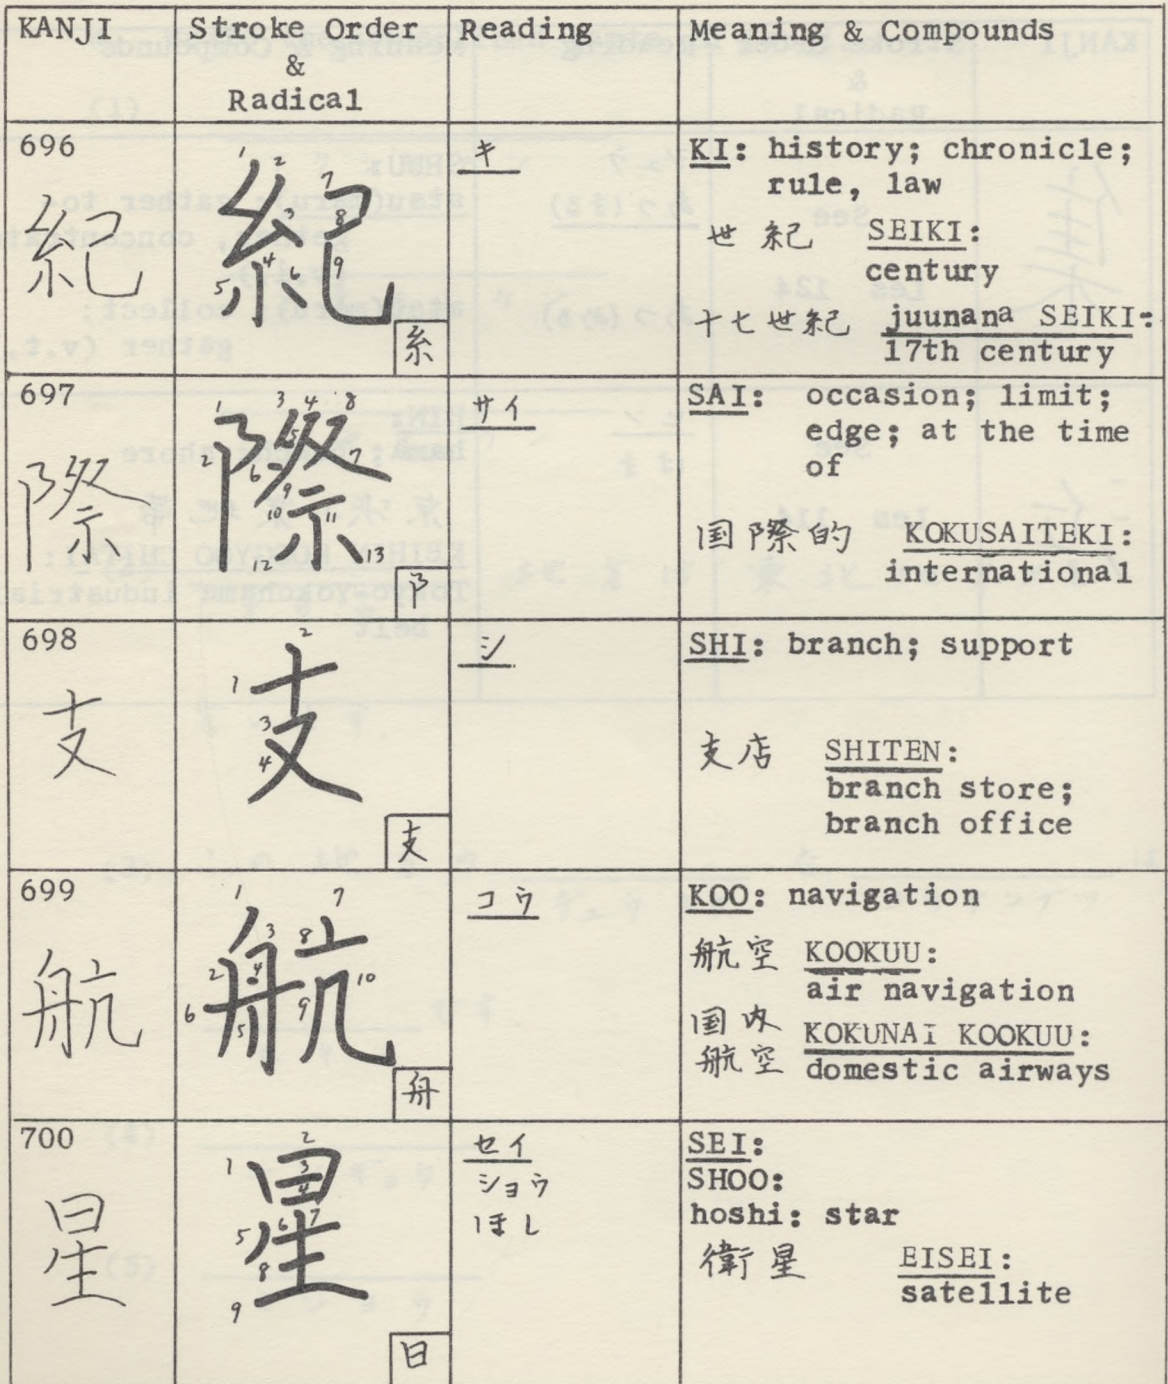 KANJI
Stroke Order
&
Radical
Reading
Meaning & Compounds
696
紀
1 2 3 4 5 6 7 8 9
紀
糸
キ
KI: history; chronicle;
rule, law
世紀 SEIKI:
century
十七世紀 juunana SEIKI:
17th century
697
際
1 2 3 4 5 6 7 8 9 10 11 12 13
際
阝
サイ
SAI: occasion; limit;
edge; at the time
of
国際的 KOKUSAITEKI:
international
698
支
1 2 3 4
支
支
シ
SHI: branch; support
支店 SHITEN:
branch store;
branch office
699
航
1 2 3 4 5 6 7 8 9 10
航
舟
コウ
KOO: navigation
航空 KOOKUU:
air navigation
国内
航空 KOKUNAI KOOKUU:
domestic airways
700
星
1 2 3 4 5 6 7 8 9
星
日
セイ
ショウ
ほし
SEI:
SHOO:
hoshi: star
衛星 EISEI:
satellite